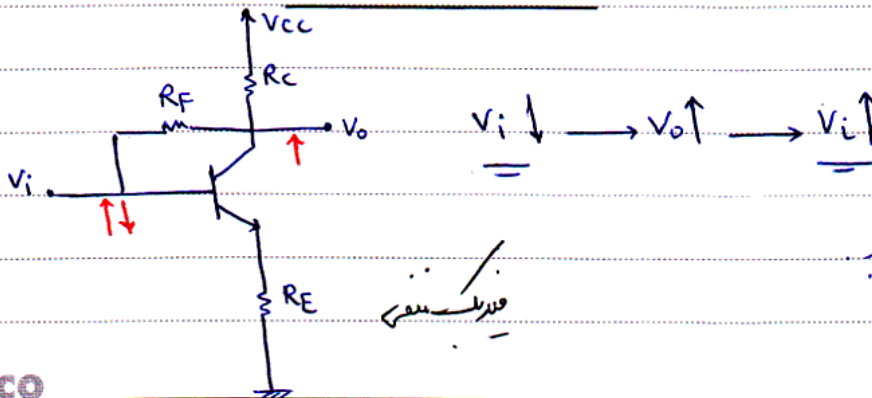 Vcc
Rc
RF
Vo
Vi
Vi ↓ → Vo ↑ → Vi ↑
RE
فیدبک منفی
co